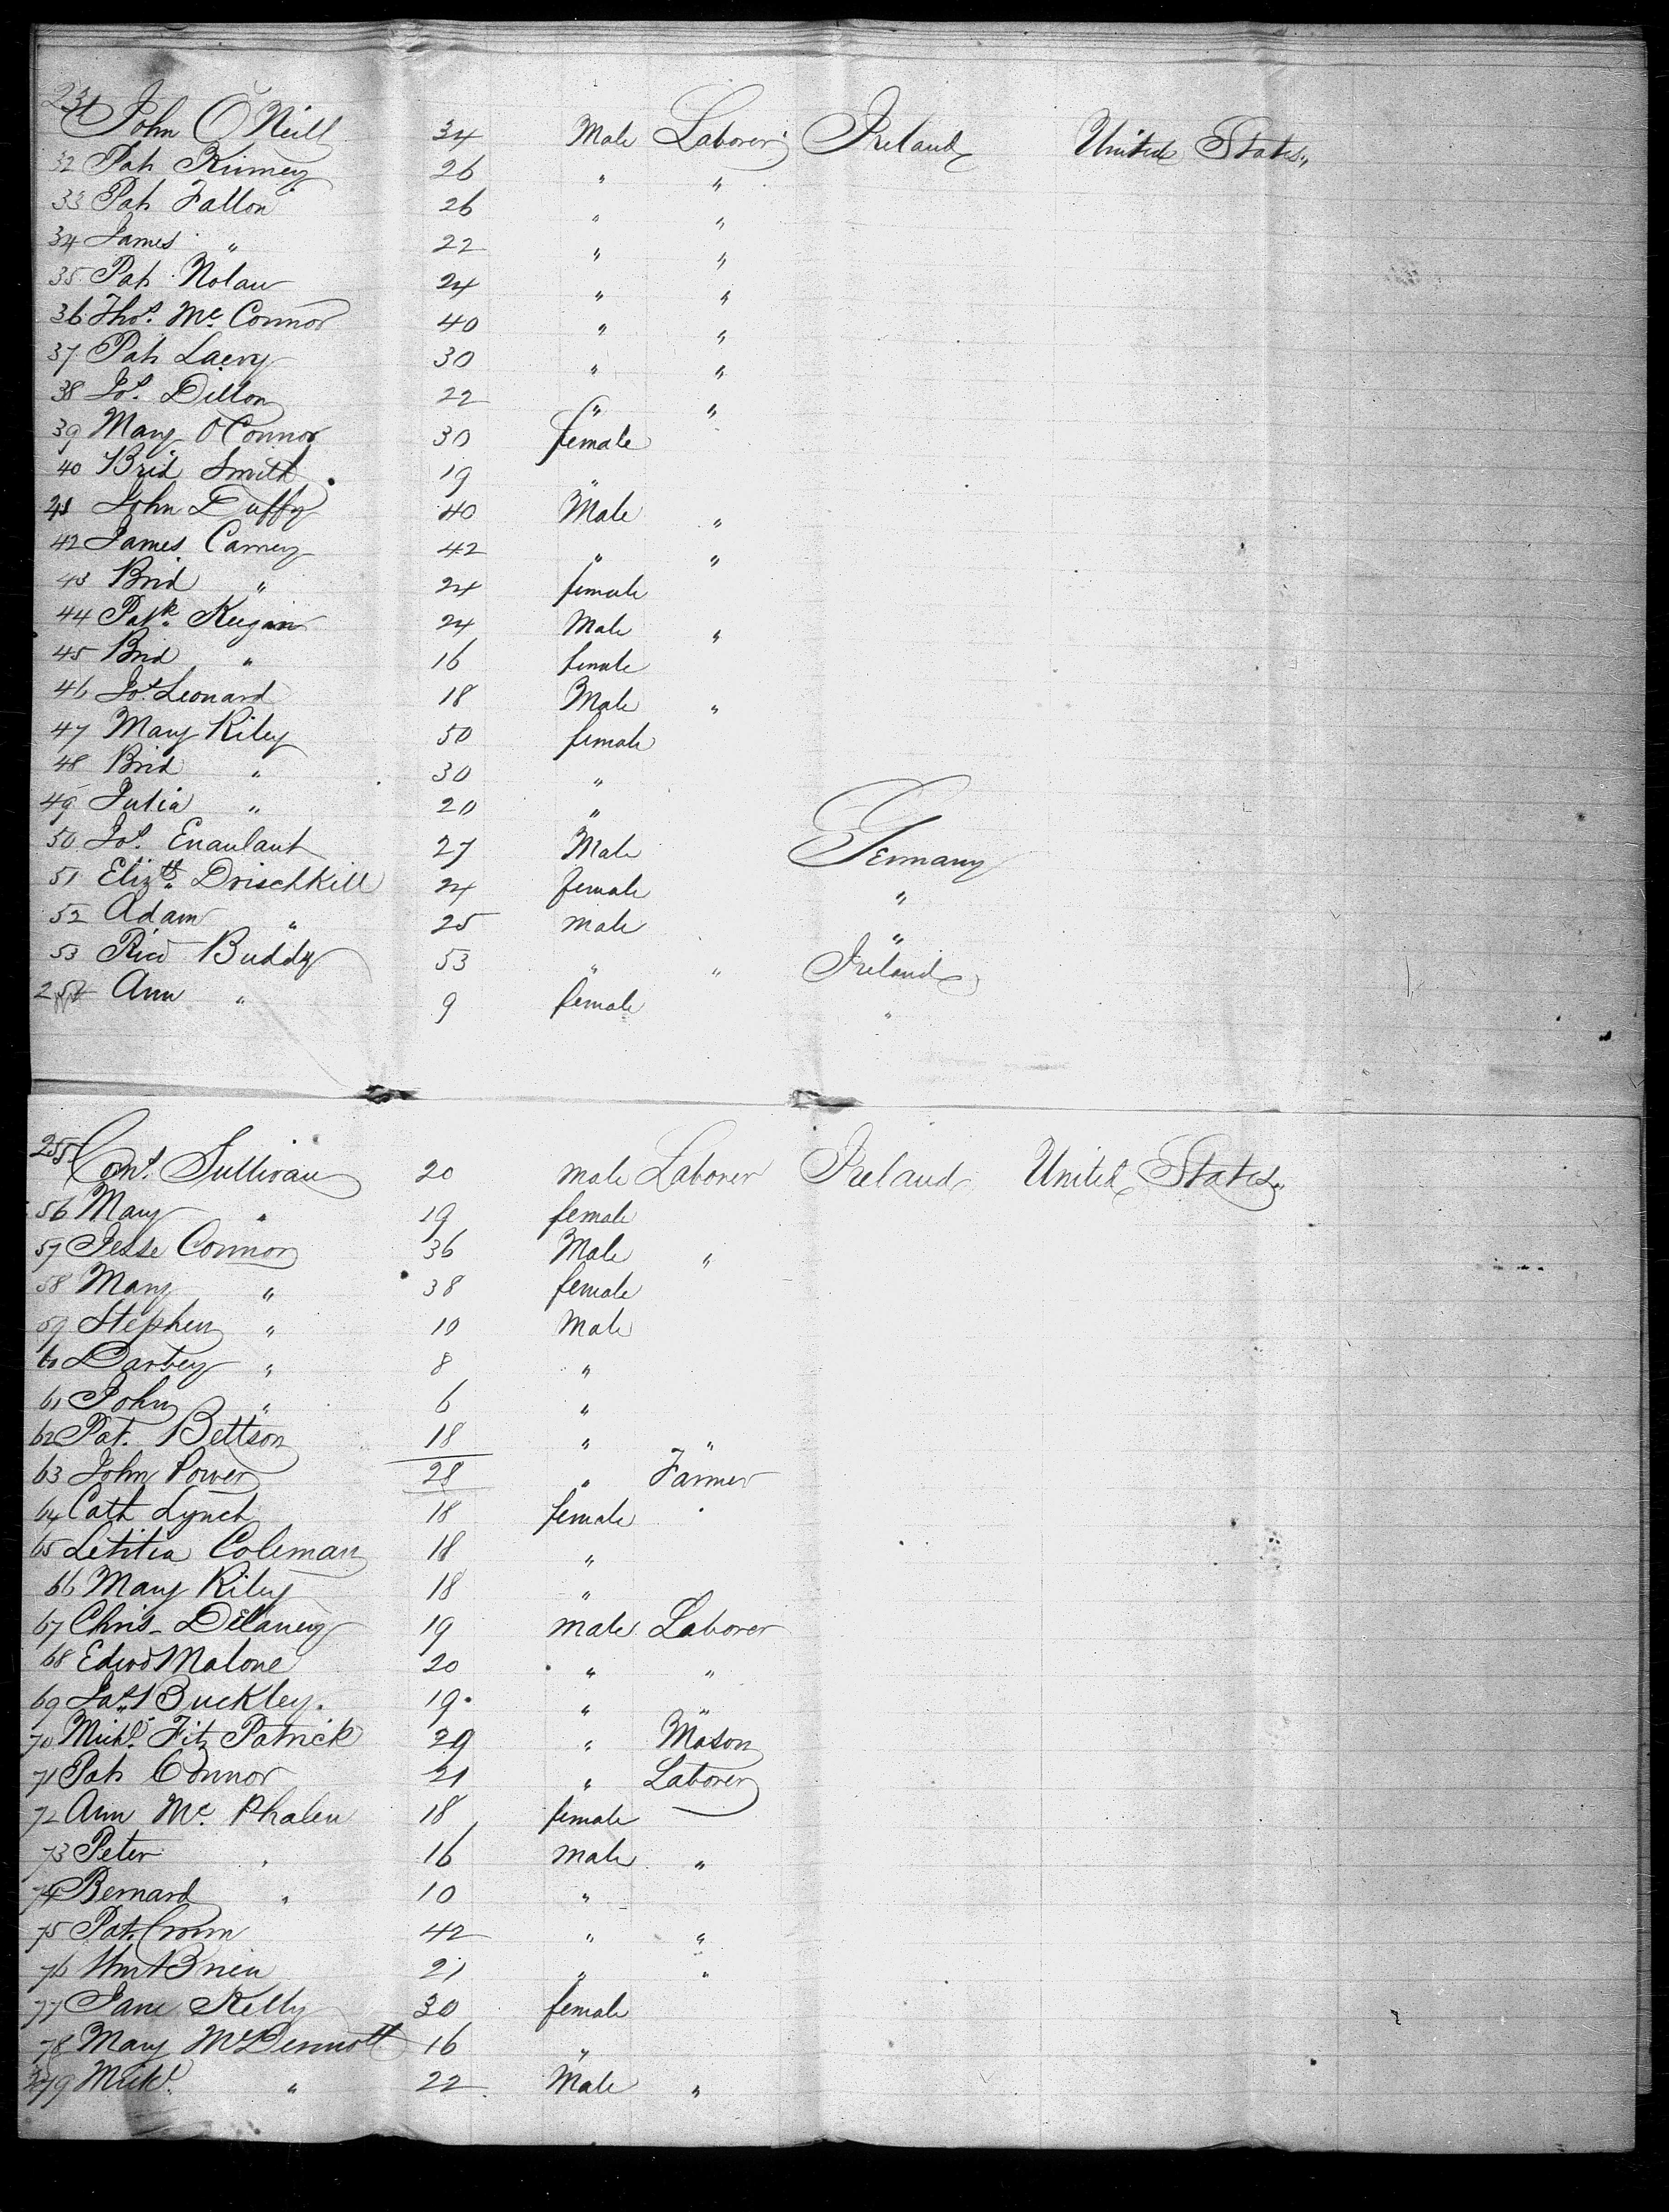 231 John O'Neill 34 Male Laborer Ireland United States
32 Pat Kinney 26 " "
33 Pat Fallon 26 " "
34 James " 22 " "
35 Pat Nolan 24 " "
36 Thos. Mc. Connor 40 " "
37 Pat Lacey 30 " "
38 Jos. Dillon 22 " "
39 Mary O'Connor 30 female
40 Brid Smith 19 "
41 John Duffy 40 Male "
42 James Carney 42 " "
43 Brid " 24 female
44 Patk. Keegan 24 Male "
45 Brid " 16 female
46 Jos. Leonard 18 Male "
47 Mary Riley 50 female
48 Brid " 30 "
49 Julia " 20 "
50 Jos. Enaulant 27 Male Germany
51 Elizth. Drischkill 24 female "
52 Adam " 25 male "
53 Ricd Buddy 53 " " Ireland
254 Ann " 9 female "
255 Corns. Sullivan 20 male Laborer Ireland United States
56 Mary " 19 female
57 Jesse Connor 36 Male "
58 Mary " 38 female
59 Stephen " 10 Male
60 Darbey " 8 "
61 John " 6 "
62 Pat. Bettson 18 " "
63 John Power 28 " Farmer
64 Cath Lynch 18 female
65 Letitia Coleman 18 "
66 Mary Riley 18 "
67 Chris- Delaney 19 male Laborer
68 Edwd Malone 20 " "
69 Jas. Buckley. 19 " "
70 Michl. Fitz Patrick 29 " Mason
71 Pat Connor 21 " Laborer
72 Ann Mc. Phalen 18 female
73 Peter " 16 male "
74 Bernard " 10 "
75 Pat. Cronn 42 " "
76 Wm Brien 21 " "
77 Jane Kelly 30 female
78 Mary McDermott 16 "
279 Michl. " 22 Male "